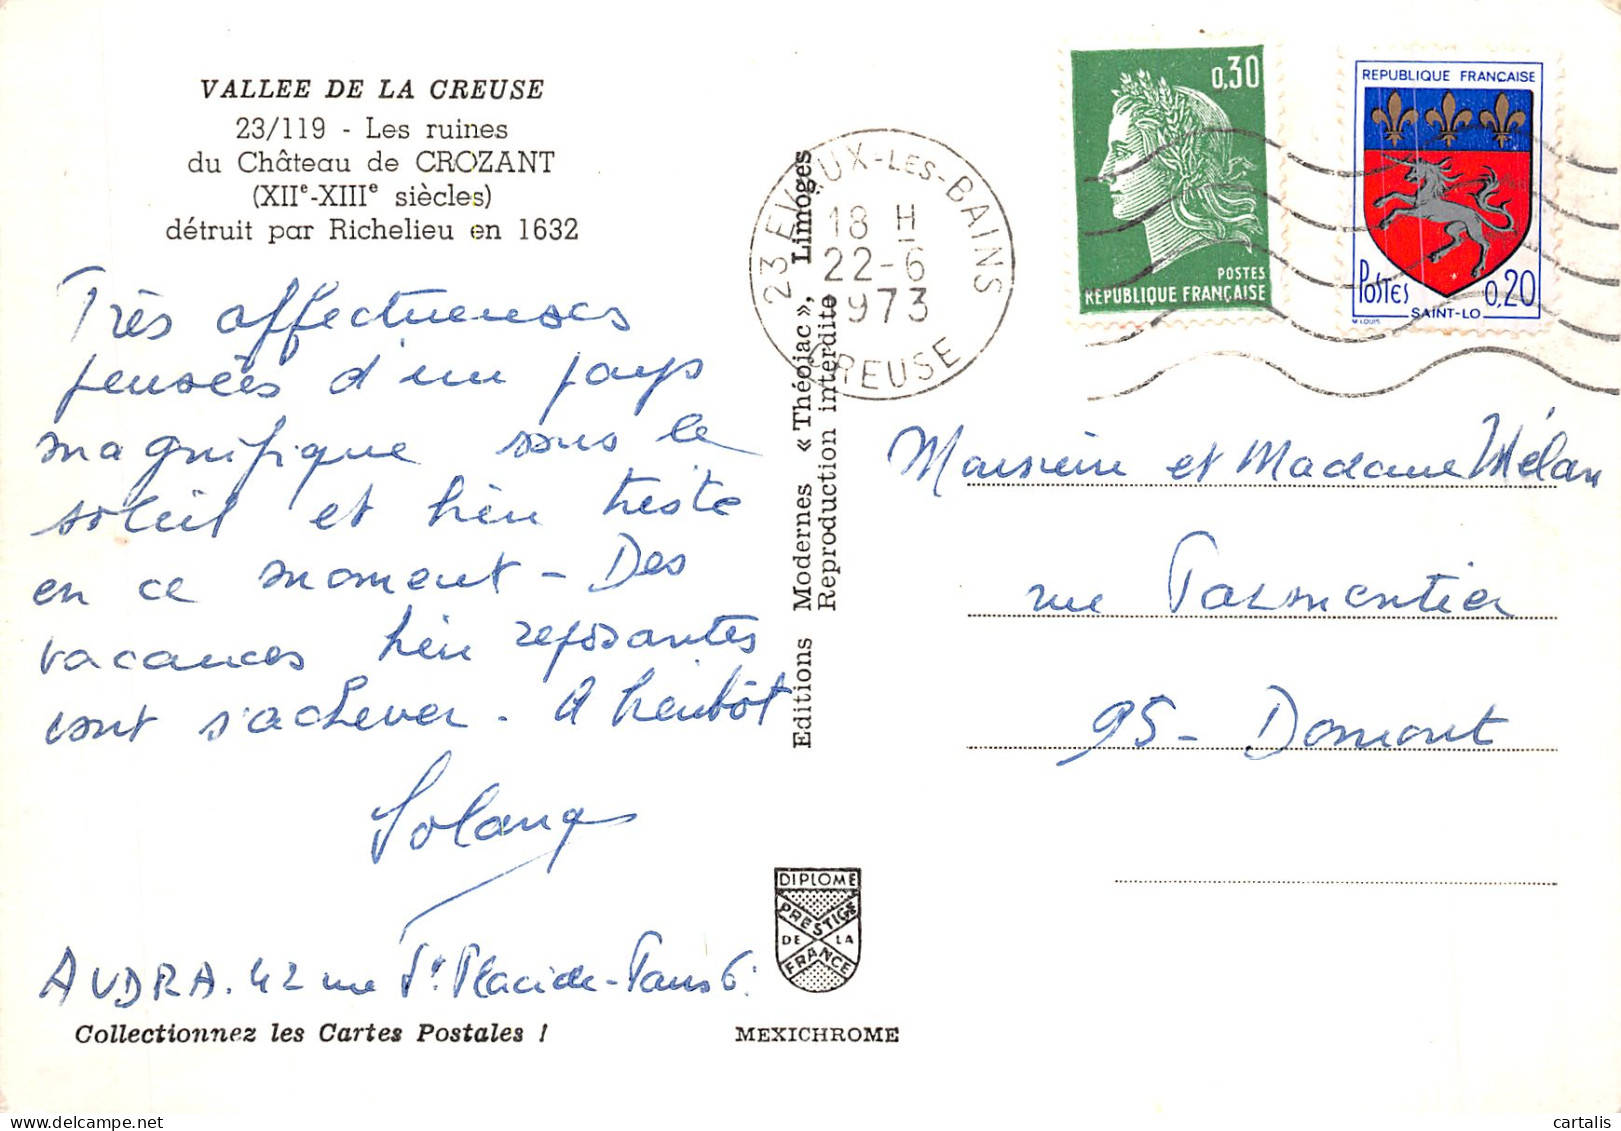 VALLEE DE LA CREUSE
23/119 - Les ruines
du Château de CROZANT
(XIIe-XIIIe siècles)
détruit par Richelieu en 1632
Très affectueuses
pensées d'un pays
magnifique sous le
soleil et bien triste
en ce moment - Des
vacances bien reposantes
vont s'achever. A bientôt
Solange
AUDRA. 42 rue St Placide - Paris 6.
Collectionnez les Cartes Postales !
Editions Modernes « Théojac », Limoges
Reproduction interdite
DIPLOME
PRESTIGE
DE LA
FRANCE
MEXICHROME
23 EVAUX-LES-BAINS
18 H
22-6
1973
CREUSE
0,30
POSTES
REPUBLIQUE FRANÇAISE
REPUBLIQUE FRANÇAISE
POSTES 0,20
SAINT-LO
M LOUIS
Monsieur et Madame Mélan
rue Parmentier
95 - Domont
cartalis